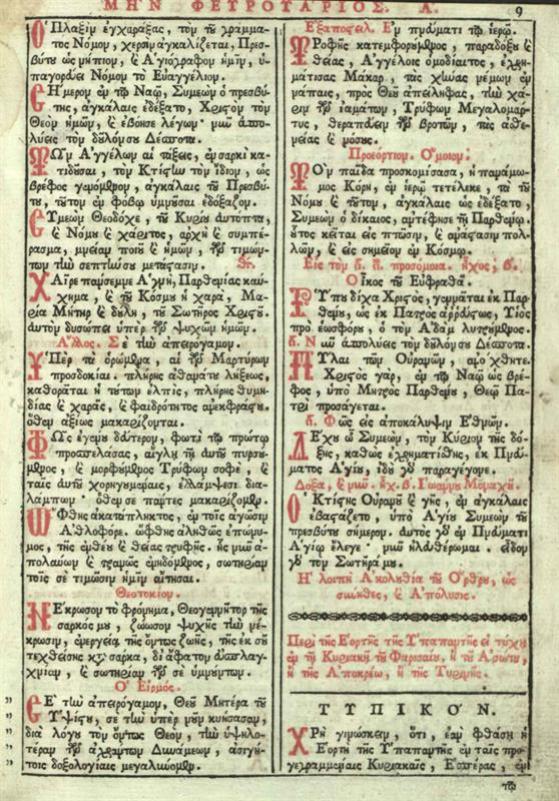 ΜΗΝ ΦΕΥΡΟΥΑΡΙΟΣ. Α. 9
Ὁ Πλαξὶν ἐγχαράξας, τὸν τοῦ γράμμα-
τος Νόμον, χερσὶν ἀγκαλίζεται, Πρεσ-
βύτου ὡς νήπιον, καὶ Ἁγιόγραφον ἡμῖν, ὑ-
παγορεύει Νόμον τὸ Εὐαγγέλιον.
Σήμερον ἐν τῷ Ναῷ, Συμεὼν ὁ πρεσβύ-
της, ἀγκάλαις ἐδέξατο, Χριστὸν τὸν
Θεὸν ἡμῶν, καὶ ἐβόησε λέγων· νῦν ἀπο-
λύεις τὸν δοῦλόν σου Δέσποτα.
Τῶν Ἀγγέλων αἱ τάξεις, ἐν σαρκὶ κα-
τιδοῦσαι, τὸν Κτίστην τὸν ἴδιον, ὡς
βρέφος γενόμενον, ἀγκάλαις τοῦ Πρεσβύ-
του, τοῦτον ἐν φόβῳ ὑμνοῦσαι ἐδόξαζον.
Συμεὼν Θεοδόχε, τοῦ Κυρίου αὐτόπτα,
καὶ Νόμου καὶ χάριτος, ἀρχὴ καὶ συμπέ-
ρασμα, μνείαν ποιοῦ καὶ ἡμῶν, τῶν τιμών-
των τὴν σεπτήν σου μετάστασιν. Θτ.
Χαῖρε πάνσεμνε Ἁγνή, Παρθενίας καύ-
χημα, καὶ τοῦ Κόσμου ἡ χαρά, Μα-
ρία Μῆτηρ καὶ δούλη, τοῦ Σωτῆρος Χριστοῦ.
αὐτὸν δυσώπει ὑπὲρ τῶν ψυχῶν ἡμῶν.
Ἄλλος. Σὲ τὴν ἀπειρόγαμον.
Ὑπὲρ τὰ ὁρώμενα, αἱ τῶν Μαρτύρων
προσδοκίαι. πλήρης ἀθανάτου λήξεως,
καθορᾶται ἡ τούτων ἐλπίς, πλήρης θυμη-
δίας καὶ χαρᾶς, καὶ φαιδρότητος ἀνεκφράστου.
ὅθεν ἀξίως μακαρίζονται.
Φῶς ἐγένου δεύτερον, φωτὶ τῷ πρώτῳ
προσπελάσας, αἴγλῃ τῇ αὐτοῦ πυρσού-
μενος, καὶ μορφούμενος Τρύφων σοφέ, καὶ
ταῖς αὐτοῦ χορηγουμέναις, ἐλλάμψεσι δια-
λάμπων· ὅθεν σε πάντες μακαρίζομεν.
Ὤφθης ἀκατάπληκτος, ἐν τοῖς ἀγῶσιν
Ἀθλοφόρε. ὤφθης ἀληθῶς ἐπώνυ-
μος, τῆς ἐνθέου καὶ θείας τρυφῆς. ἧς νῦν ἀ-
πολαύων καὶ τρανῶς ἐνηδόμενος, σωτηρίαν
τοῖς σὲ τιμῶσιν ἡμῖν αἴτησαι.
Θεοτοκίον.
Νέκρωσον τὸ φρόνημα, Θεογεννῆτορ τῆς
σαρκός μου, ζώωσον ψυχῆς τὴν νέ-
κρωσιν, ἐνεργείᾳ τῆς ὄντως ζωῆς, τῆς ἐκ σοῦ
τεχθείσης κατὰ σάρκα, δι' ἄφατον εὐσπλαγ-
χνίαν, καὶ σωτηρίαν τῶν σὲ ὑμνούντων.
Ὁ Εἱρμός.
Σὲ τὴν ἀπειρόγαμον, Θεοῦ Μητέρα τοῦ
Ὑψίστου, σὲ τὴν ὑπὲρ νοῦν κυήσασαν,
διὰ λόγου τὸν ὄντως Θεόν, τὴν ὑψηλο-
τέραν τῶν ἀχράντων Δυνάμεων, ἀσιγή-
τοις δοξολογίαις μεγαλύνομεν.
Ἐξαποστειλ. Ἐν πνεύματι τῷ ἱερῷ.
Τροφῆς κατεμφορούμενος, παραδόξου καὶ
θείας, Ἀγγέλοις ὁμοδίαιτος, ἐχρη-
μάτισας Μάκαρ, τὰς χῆνας νέμων ἐν
νάπαις, πρὸς Θεοῦ ἀπείληφας, τὴν χά-
ριν τῶν ἰαμάτων, Τρύφων Μεγαλομάρ-
τυς, θεραπεύειν τῶν βροτῶν, τὰς ἀσθε-
νείας καὶ νόσους.
Προεόρτιον. Ὅμοιον.
Τὸν παῖδα προσκομίσασα, ἡ πανάμω-
μος Κόρη, ἐν ἱερῷ τετέλεκε, τὰ τοῦ
Νόμου καὶ τοῦτον, ἀγκάλαις ὡς ἐδέξατο,
Συμεὼν ὁ δίκαιος, ἀντέφησε τῇ Παρθένῳ.
οὗτος κεῖται εἰς πτῶσιν, καὶ ἀνάστασιν πολ-
λῶν, καὶ εἰς σημεῖον ἐν Κόσμῳ.
Εἰς τὸν στ. στ. προσόμοια. ἦχος, β.
Οἶκος τοῦ Εὐφραθᾶ.
Ῥύπου δίχα Χριστός, γεννᾶται ἐκ Παρ-
θένου, ὡς ἐκ Πατρὸς ἀρρεύστως, Υἱὸς
πρὸ ἑωσφόρου, ὁ τὸν Ἀδὰμ λυτρούμενος.
στ. Νῦν ἀπολύεις τὸν δοῦλόν σου Δέσποτα.
Πύλαι τῶν Οὐρανῶν, ἀνοίχθητε.
Χριστὸς γάρ, ἐν τῷ Ναῷ ὡς βρέ-
φος, ὑπὸ Μητρὸς Παρθένου, Θεῷ Πα-
τρὶ προσάγεται.
στ. Φῶς εἰς ἀποκάλυψιν Ἐθνῶν.
Δέχου ὦ Συμεών, τὸν Κύριον τῆς δό-
ξης, καθὼς ἐχρηματίσθης, ἐκ Πνεύ-
ματος Ἁγίου, ἰδοὺ γὰρ παραγέγονε.
Δόξα, καὶ νῦν. ἦχ. β. Ἰωάννου Μοναχοῦ.
Ὁ Κτίστης Οὐρανοῦ καὶ γῆς, ἐν ἀγκάλαις
ἐβαστάζετο, ὑπὸ Ἁγίου Συμεὼν τοῦ
πρεσβύτου σήμερον. Αὐτὸς γὰρ ἐν Πνεύματι
Ἁγίῳ ἔλεγε· νῦν ἠλευθέρωμαι. εἶδον
γὰρ τὸν Σωτῆρά μου.
Ἡ λοιπὴ Ἀκολουθία τοῦ Ὄρθρου, ὡς
σύνηθες, καὶ Ἀπόλυσις.
Περὶ τῆς Ἑορτῆς τῆς Ὑπαπαντῆς εἰ τύχῃ
ἐν τῇ Κυριακῇ τοῦ Φαρισαίου, ἢ τοῦ Ἀσώτου,
ἢ τῆς Ἀποκρέω, ἢ τῆς Τυρινῆς.
ΤΥΠΙΚΟΝ.
Χρὴ γινώσκειν, ὅτι, ἐὰν φθάσῃ ἡ
Ἑορτὴ τῆς Ὑπαπαντῆς ἐν ταῖς προ-
γεγραμμέναις Κυριακαῖς, Ἑσπέρας, ἐν
τῷ